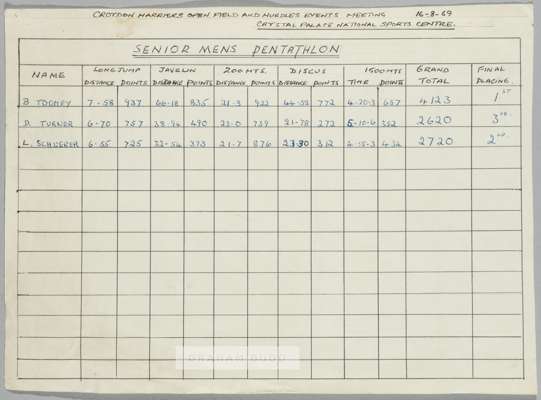 CROYDON HARRIERS OPEN FIELD AND HURDLES EVENTS MEETING 16-8-69
CRYSTAL PALACE NATIONAL SPORTS CENTRE.
SENIOR MENS PENTATHLON
NAME LONG JUMP JAVELIN 200MTS DISCUS 1500MTS GRAND TOTAL FINAL PLACING.
DISTANCE POINTS DISTANCE POINTS DISTANCE POINTS DISTANCE POINTS TIME POINTS
B TOOMEY 7-58 937 66-18 835 21-3 922 44-52 772 4-20-3 657 4123 1ST
D. TURNER 6-70 757 38-94 490 23-0 759 21-78 272 5-10-6 352 2620 3RD
L. SCHUERER 6-55 725 32-54 373 21-7 876 23-90 312 4-15-3 434 2720 2ND
GRAHAM BUDD